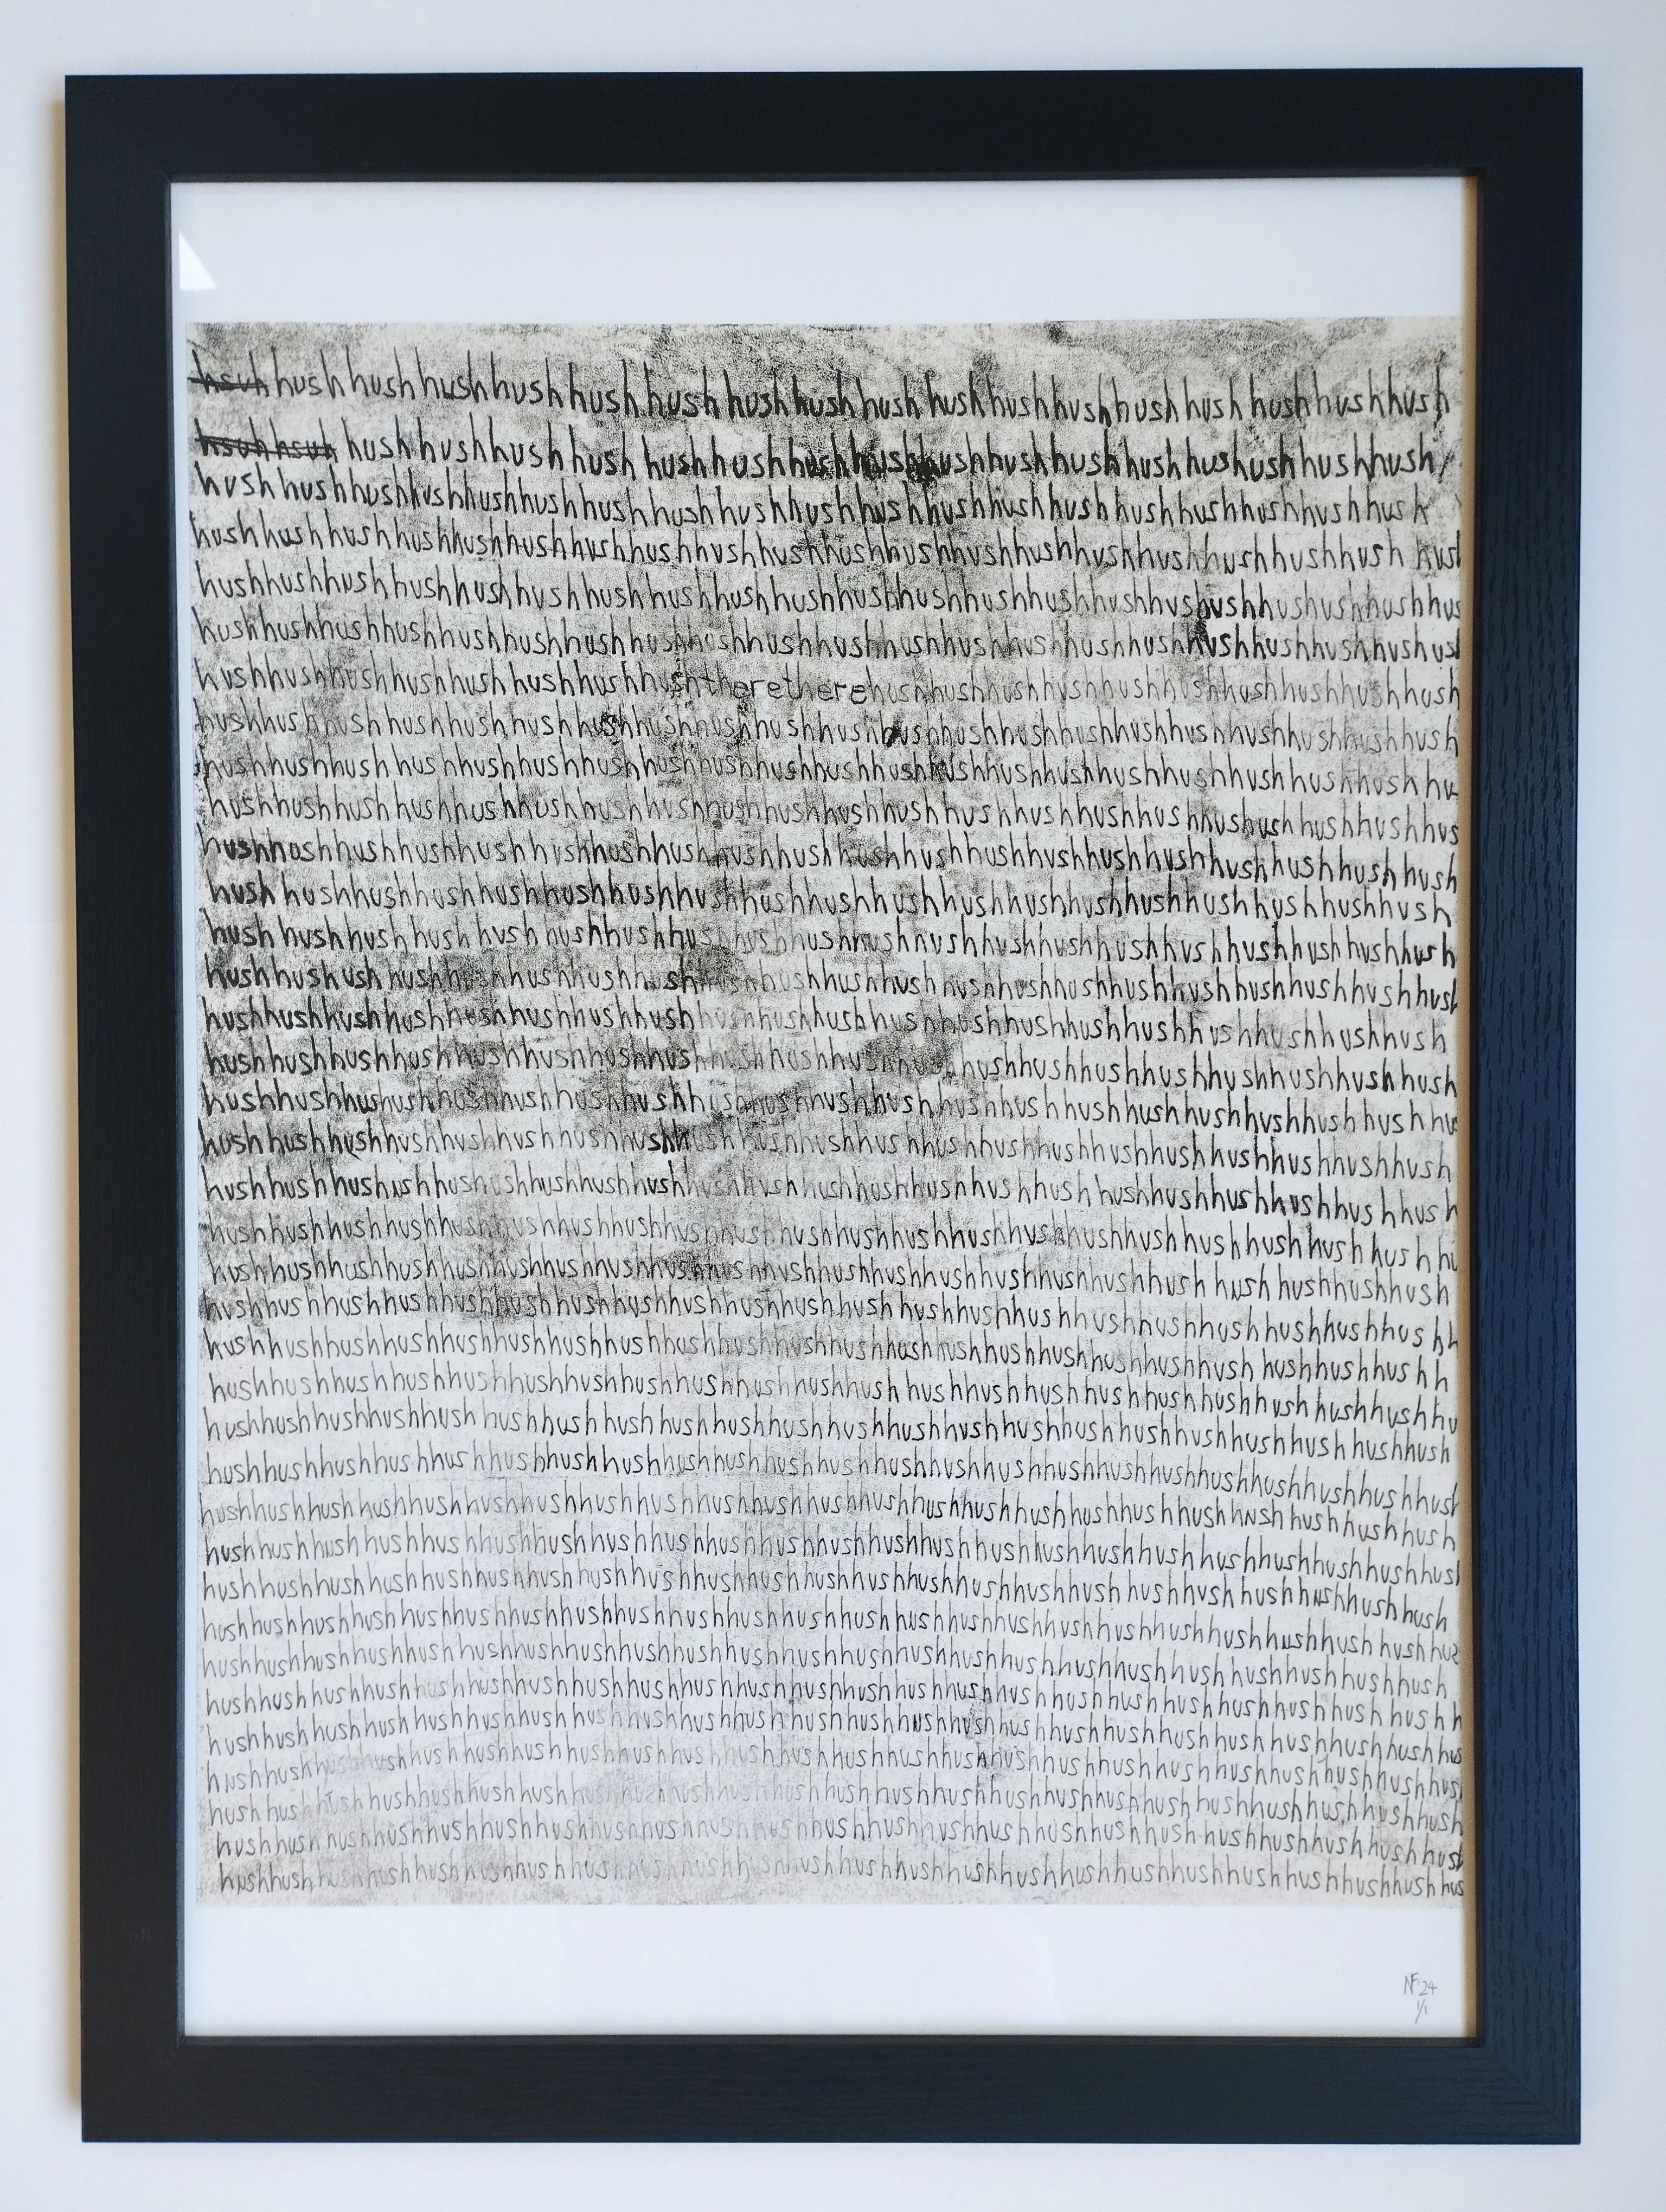 hsuh hush hush hush hush hush hush hush hush hush hush hush hush hush hush hush hush hush
hsuh hsuh hush hush hush hush hush hush hush hush hush hush hush hush hush hush hush hush
hush hush hush hush hush hush hush hush hush hush hush hush hush hush hush hush hush hush hush
hush hush hush hush hush hush hush hush hush hush hush hush hush hush hush hush hush hush hush hush
hush hush hush hush hush hush hush hush hush hush hush hush hush hush hush hush hush hush hush hus
hush hush hush hush hush hush hush hush hush hush hush hush hush hush hush hush hush hush hush hush
hush hush hush hush hush hush hush hush there there hush hush hush hush hush hush hush hush hush hush
hush hush hush hush hush hush hush hush hush hush hush hush hush hush hush hush hush hush hush hush
hush hush hush hush hush hush hush hush hush hush hush hush hush hush hush hush hush hush hush hu
hush hush hush hush hush hush hush hush hush hush hush hush hush hush hush hush hush hush hush hus
hush hush hush hush hush hush hush hush hush hush hush hush hush hush hush hush hush hush hush hush
hush hush hush hush hush hush hush hush hush hush hush hush hush hush hush hush hush hush hush
hush hush hush hush hush hush hush hush hush hush hush hush hush hush hush hush hush hush hush
hush hush hush hush hush hush hush hush hush hush hush hush hush hush hush hush hush hush hush hush
hush hush hush hush hush hush hush hush hush hush hush hush hush hush hush hush hush hush hush hush
hush hush hush hush hush hush hush hush hush hush hush hush hush hush hush hush hush hush hush hush
hush hush hush hush hush hush hush hush hush hush hush hush hush hush hush hush hush hush hush hu
hush hush hush hush hush hush hush hush hush hush hush hush hush hush hush hush hush hush hush hush
hush hush hush hush hush hush hush hush hush hush hush hush hush hush hush hush hush hush hush hush
hush hush hush hush hush hush hush hush hush hush hush hush hush hush hush hush hush hush hush hu
hush hush hush hush hush hush hush hush hush hush hush hush hush hush hush hush hush hush hush hush
hush hush hush hush hush hush hush hush hush hush hush hush hush hush hush hush hush hush hush hush h
hush hush hush hush hush hush hush hush hush hush hush hush hush hush hush hush hush hush hush hush h
hush hush hush hush hush hush hush hush hush hush hush hush hush hush hush hush hush hush hush hush hu
hush hush hush hush hush hush hush hush hush hush hush hush hush hush hush hush hush hush hush hush hush
hush hush hush hush hush hush hush hush hush hush hush hush hush hush hush hush hush hush hush hush hush
hush hush hush hush hush hush hush hush hush hush hush hush hush hush hush hush hush hush hush hush hush
hush hush hush hush hush hush hush hush hush hush hush hush hush hush hush hush hush hush hush hush hush
hush hush hush hush hush hush hush hush hush hush hush hush hush hush hush hush hush hush hush hush hush
hush hush hush hush hush hush hush hush hush hush hush hush hush hush hush hush hush hush hush hush hus
hush hush hush hush hush hush hush hush hush hush hush hush hush hush hush hush hush hush hush hush hush
hush hush hush hush hush hush hush hush hush hush hush hush hush hush hush hush hush hush hush hush hush h
hush hush hush hush hush hush hush hush hush hush hush hush hush hush hush hush hush hush hush hush hus
hush hush hush hush hush hush hush hush hush hush hush hush hush hush hush hush hush hush hush hush hush
hush hush hush hush hush hush hush hush hush hush hush hush hush hush hush hush hush hush hush hush hush
hush hush hush hush hush hush hush hush hush hush hush hush hush hush hush hush hush hush hush hush hush
hush hush hush hush hush hush hush hush hush hush hush hush hush hush hush hush hush hush hush hush hus
NF '24
1/1